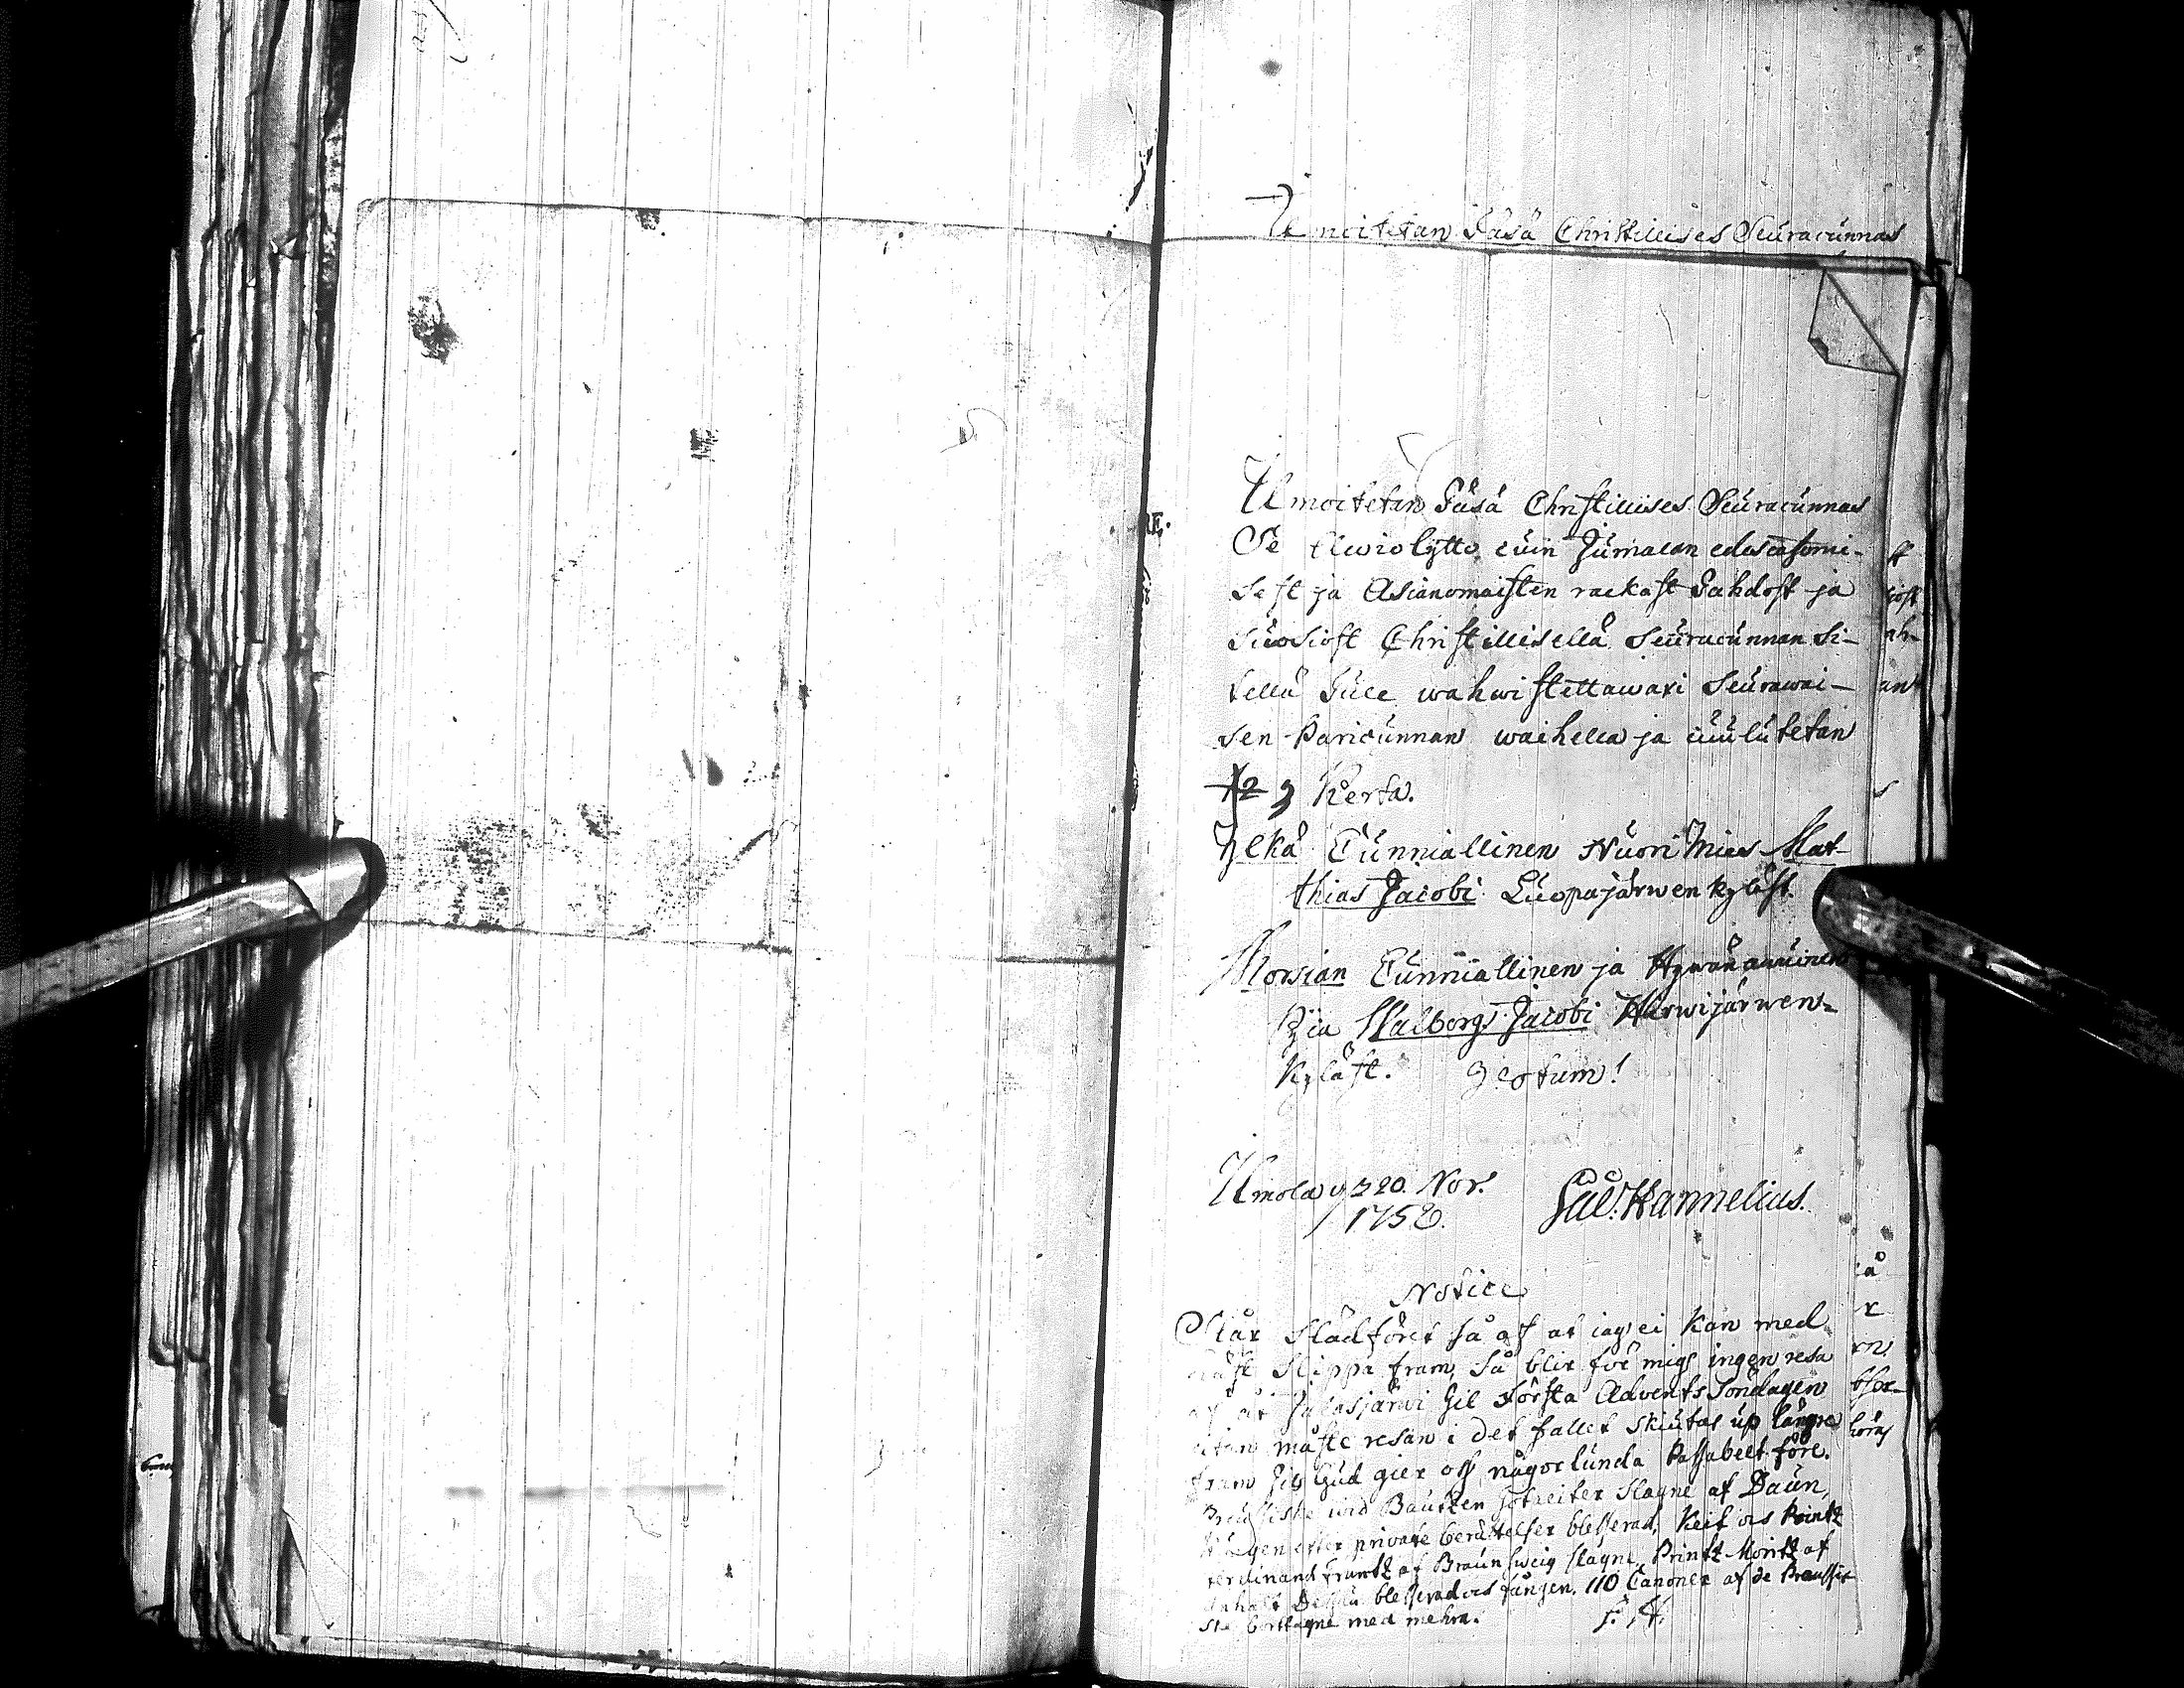 Ilmoitetan Täsä Christillises Seuracunnas
Ilmoitetan Täsä Christillises Seuracunnas
Se Awiolijtto cuin Jumalan edescatzomi-
sest ja Asianomaisten rackast Tahdost ja
Suosiost Christillisellä Seuracunnan Si-
tellä Tule wahwistettawaxi Seurawai-
sen Pariscunnan waihella ja cuulutetan
3 Kerta.
Ylkä Cunniallinen Nuori Mies Mat-
thias Jacobi Luopajärwen kyläst.
Morsian Cunniallinen ja Hywän
Pijca Walborg Jacobi Hirwijärwen-
Kyläst.
Ilmola 20. Nov.
1758.
Hannelius.
Notice
Står Slädföret så af at iag ei kan med
häst slippa fram, så blir för mig ingen resa
af åt Jalasjärwi til Första Advents Söndagen
utan måste resan i det fallet skiutas up längre
fram til Gud gier oss någorlunda Passabelt före.
Preussiske wid Bautzen totaliter slagne af Daun,
Kungen efter private berättelser blesserad, Keit och Printz
Ferdinand Frantz af Braunsweig slagne, Printz Moritz af
Anhalt Dessau blesserad och fången. 110 Canoner af de Preussis-
ske borttagne med mehra.